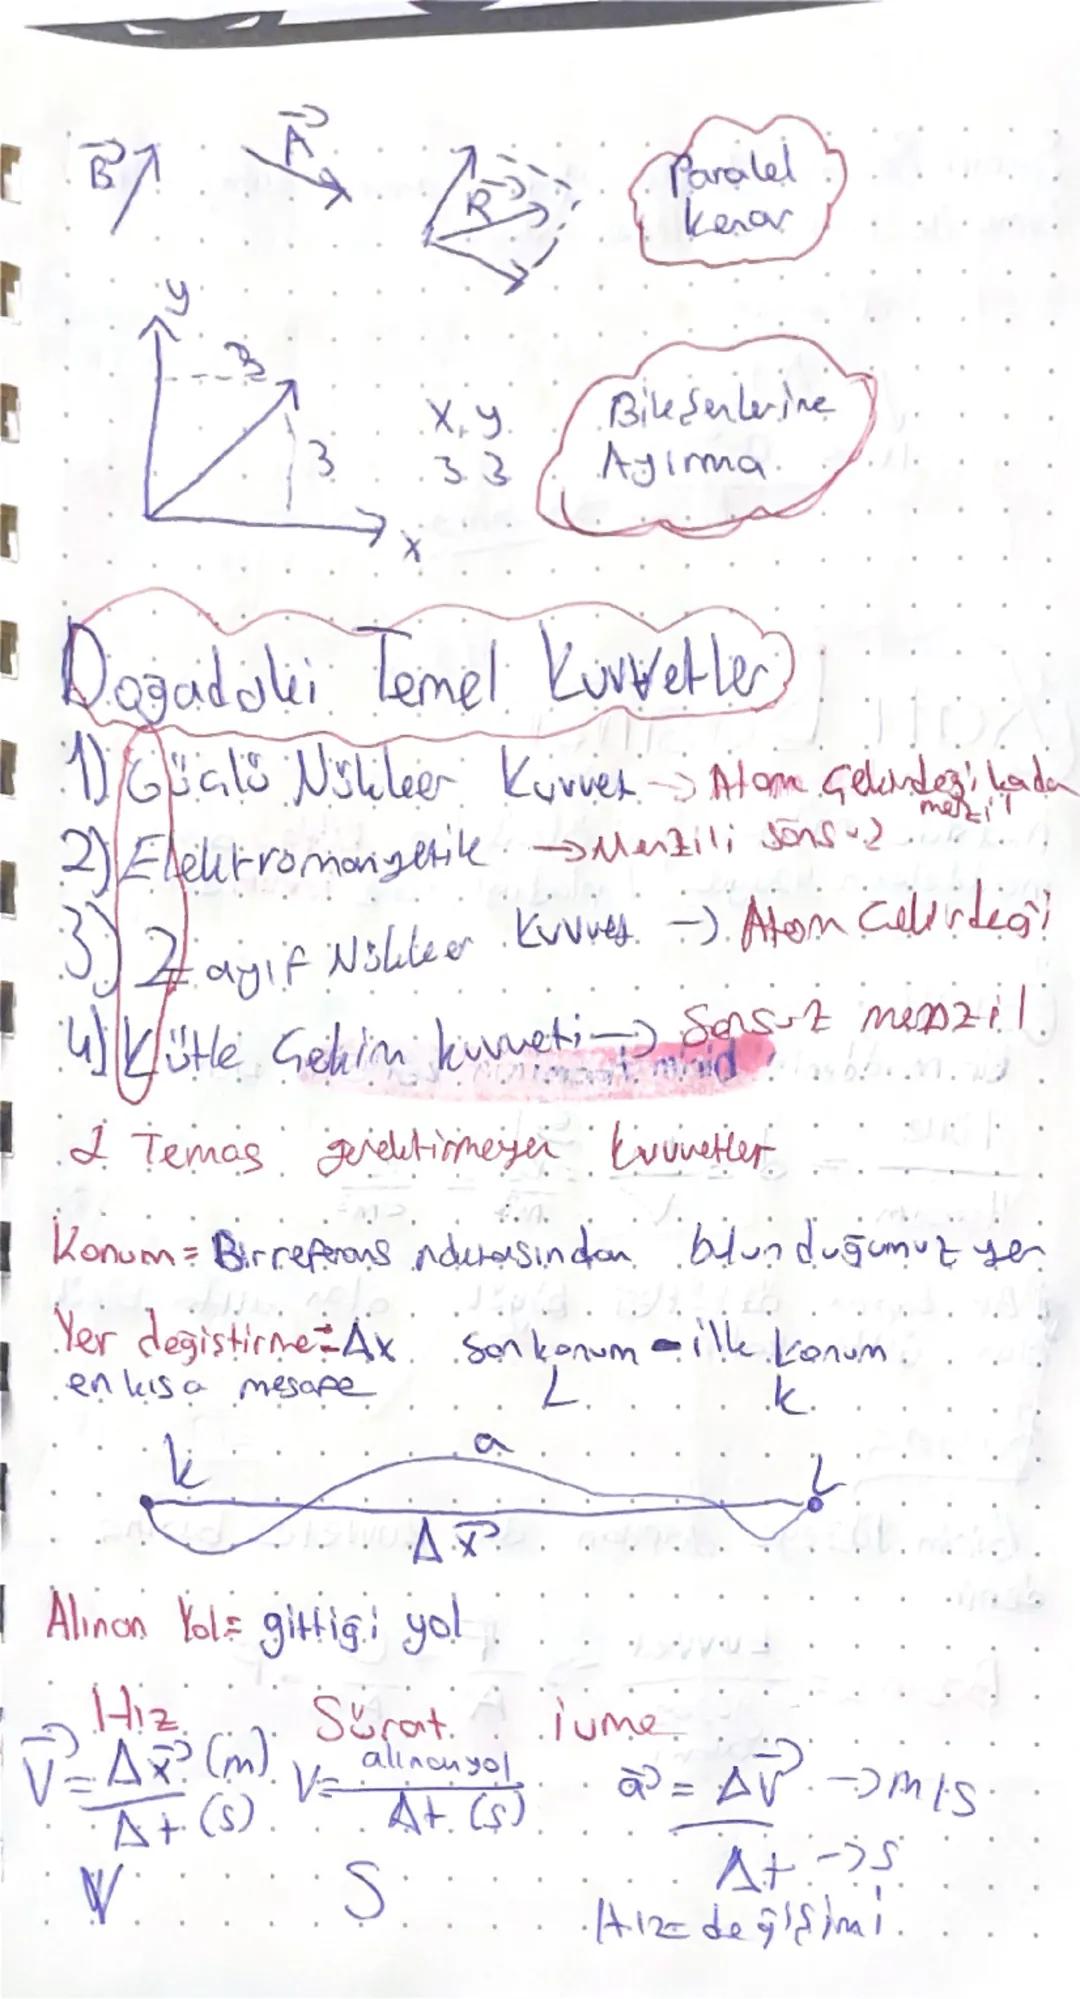 B A R Paralel
kenar
y
3
x, y Bileşenlerine
3 3 3 Ayırma
x
Doğadaki Temel Kuvvetler
1) Güçlü Nükleer Kuvvet → Atom Çekirdeği kadar
menzil
2) Elektromanyetik → Menzili sonsuz
3) Zayıf Nükleer Kuvvet → Atom Çekirdeği
4) Kütle Çekim kuvveti → Sonsuz menzil
Temas gerektirmeyen kuvvetler
Konum = Bir referans noktasından bulunduğumuz yer
Yer değiştirme = Δx son konum - ilk konum
en kısa mesafe L k
k a L
Δx
Alınan Yol = gittiği yol
Hız Sürat ivme
V = Δx (m) V = alınan yol a = ΔV → m/s
Δt (s) Δt (s) Δt → s
V S Hız değişimi